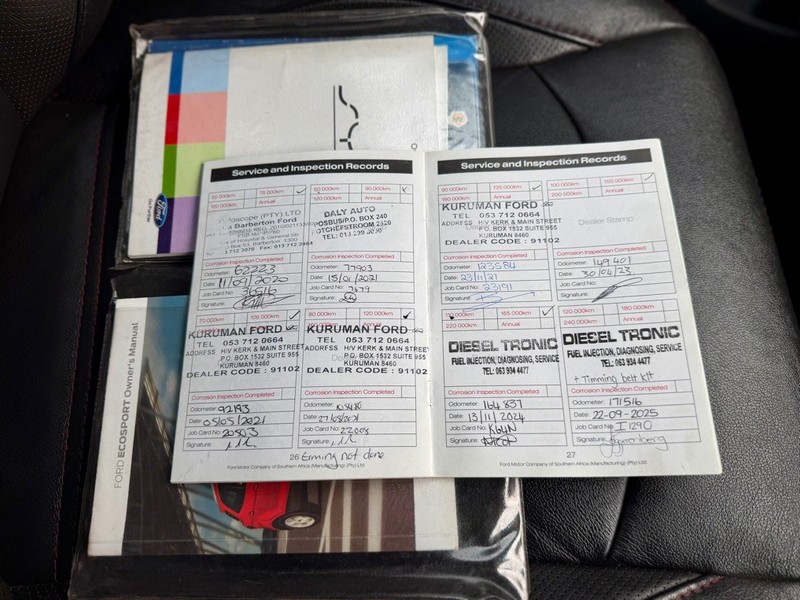 Ford
Go Further
FORD ECOSPORT Owner's Manual
Service and Inspection Records
75 000km
Annual
90 000km
Annual
(PTY) LTD
Barberton Ford
DALY AUTO
P.O. BOX 240
TEL:
Corrosion Inspection Completed
Odometer: 62223
Date: 11/09/2020
Job Card No:
Signature:
Corrosion Inspection Completed
Odometer: 77903
Date: 15/01/2021
Job Card No: 7679
Signature:
70 000km
105 000km
120 000km
KURUMAN FORD
TEL 053 712 0664
ADDRESS H/V KERK & MAIN STREET
P.O. BOX 1532 SUITE 955
KURUMAN 8460
DEALER CODE : 91102
KURUMAN FORD
TEL 053 712 0664
ADDRESS H/V KERK & MAIN STREET
P.O. BOX 1532 SUITE 955
KURUMAN 8460
DEALER CODE : 91102
Corrosion Inspection Completed
Odometer: 92193
Date: 05/05/2021
Job Card No:
Signature:
Corrosion Inspection Completed
Odometer:
Date:
Job Card No: 22008
Signature:
26
not done
Ford Motor Company of Southern Africa (Manufacturing) (Pty) Ltd
Service and Inspection Records
120 000km
Annual
100 000km
200 000km
Annual
KURUMAN FORD
TEL 053 712 0664
ADDRESS H/V KERK & MAIN STREET
P.O. BOX 1532 SUITE 955
KURUMAN 8460
DEALER CODE : 91102
Dealer Stamp
Corrosion Inspection Completed
Odometer: 123584
Date: 23/11/21
Job Card No: 23191
Signature:
Corrosion Inspection Completed
Odometer: 149 401
Date: 30/04/23
Job Card No:
Signature:
165 000km
220 000km
Annual
120 000km
180 000km
240 000km
Annual
DIESEL TRONIC
FUEL INJECTION, DIAGNOSING, SERVICE
TEL: 063 934 4477
DIESEL TRONIC
FUEL INJECTION, DIAGNOSING, SERVICE
TEL: 063 934 4477
+ Timming belt kit
Corrosion Inspection Completed
Odometer: 164 837
Date: 13/11/2024
Job Card No:
Signature:
Corrosion Inspection Completed
Odometer: 171516
Date: 22-09-2025
Job Card No: I 1290
Signature:
27
Ford Motor Company of Southern Africa (Manufacturing) (Pty) Ltd